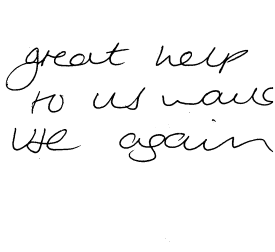 great help
to us would
use again